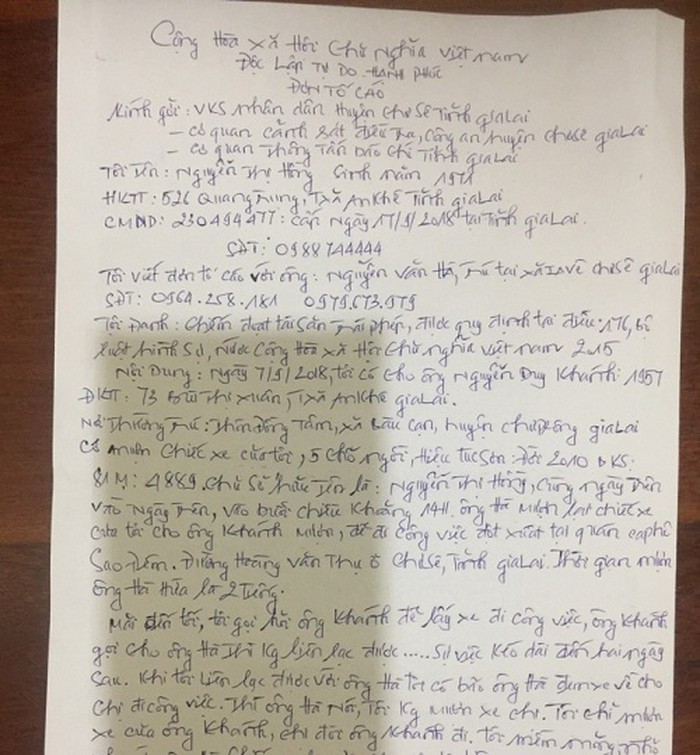 Cộng Hòa xã Hội Chủ Nghĩa Việt Nam
Độc Lập Tự Do Hạnh Phúc
ĐƠN TỐ CÁO
Kính gởi: VKS nhân dân Huyện Chư Sê Tỉnh Gia Lai
- Cơ quan cảnh sát điều tra, công an huyện Chư Sê Gia Lai
- Cơ quan Thông Tấn báo chí Tỉnh Gia Lai
Tôi Tên: Nguyễn Thị Hồng Sinh năm 1971
HKTT: 526 Quang Trung, T.xã An Khê Tỉnh Gia Lai
CMND: 230494477: cấp Ngày 17/1/2018 tại Tỉnh Gia Lai.
SĐT: 0988744444
Tôi viết đơn tố cáo với ông: Nguyễn Văn Hà, trú tại xã Chư Sê Gia Lai
SĐT: 0964.258.181 0979.673.979
Tội Danh: Chiếm đoạt tài sản trái phép, được quy định tại điều: 176, bộ
luật hình sự, Nước Cộng Hòa xã Hội Chủ nghĩa Việt Nam 2015
Nội Dung: Ngày 7/9/2018, tôi có cho ông Nguyễn Duy Khánh: 1957
ĐKTT: 73 Bùi Thị Xuân, T.xã An Khê Gia Lai.
Nơi Thường trú: Thôn Đồng Tâm, xã Bàu Cạn, huyện Chư Prông Gia Lai
Có mượn Chiếc xe của tôi, 5 chỗ ngồi, Hiệu Tucson: Đời 2010 BKS:
81M: 4889. Chủ Sở hữu Tên là: Nguyễn Thị Hồng, Cũng ngày Trên
Vào Ngày Trên, vào buổi chiều Khoảng 14H. ông Hà Mượn lại chiếc xe
của tôi cho ông Khánh mượn, để đi công việc đột xuất tại quán caphê
Sao Đêm. Đường Hoàng Văn Thụ ở Chư Sê, Tỉnh Gia Lai. Thời gian mượn
ông Hà Hứa là 2 Tiếng.
Mãi đến tối, tôi gọi hỏi ông Khánh để lấy xe đi công việc, ông Khánh
gọi cho ông Hà Thì Kg liên lạc được..... Sự việc Kéo dài đến hai ngày
Sau. Khi tôi liên lạc được với ông Hà tôi có bảo ông Hà đem xe về cho
Chị đi công việc. Thì ông Hà Nói, Tôi Kg Mượn xe chị. Tôi chỉ mượn
xe của ông Khánh, chị đòi ông Khánh đi. tôi